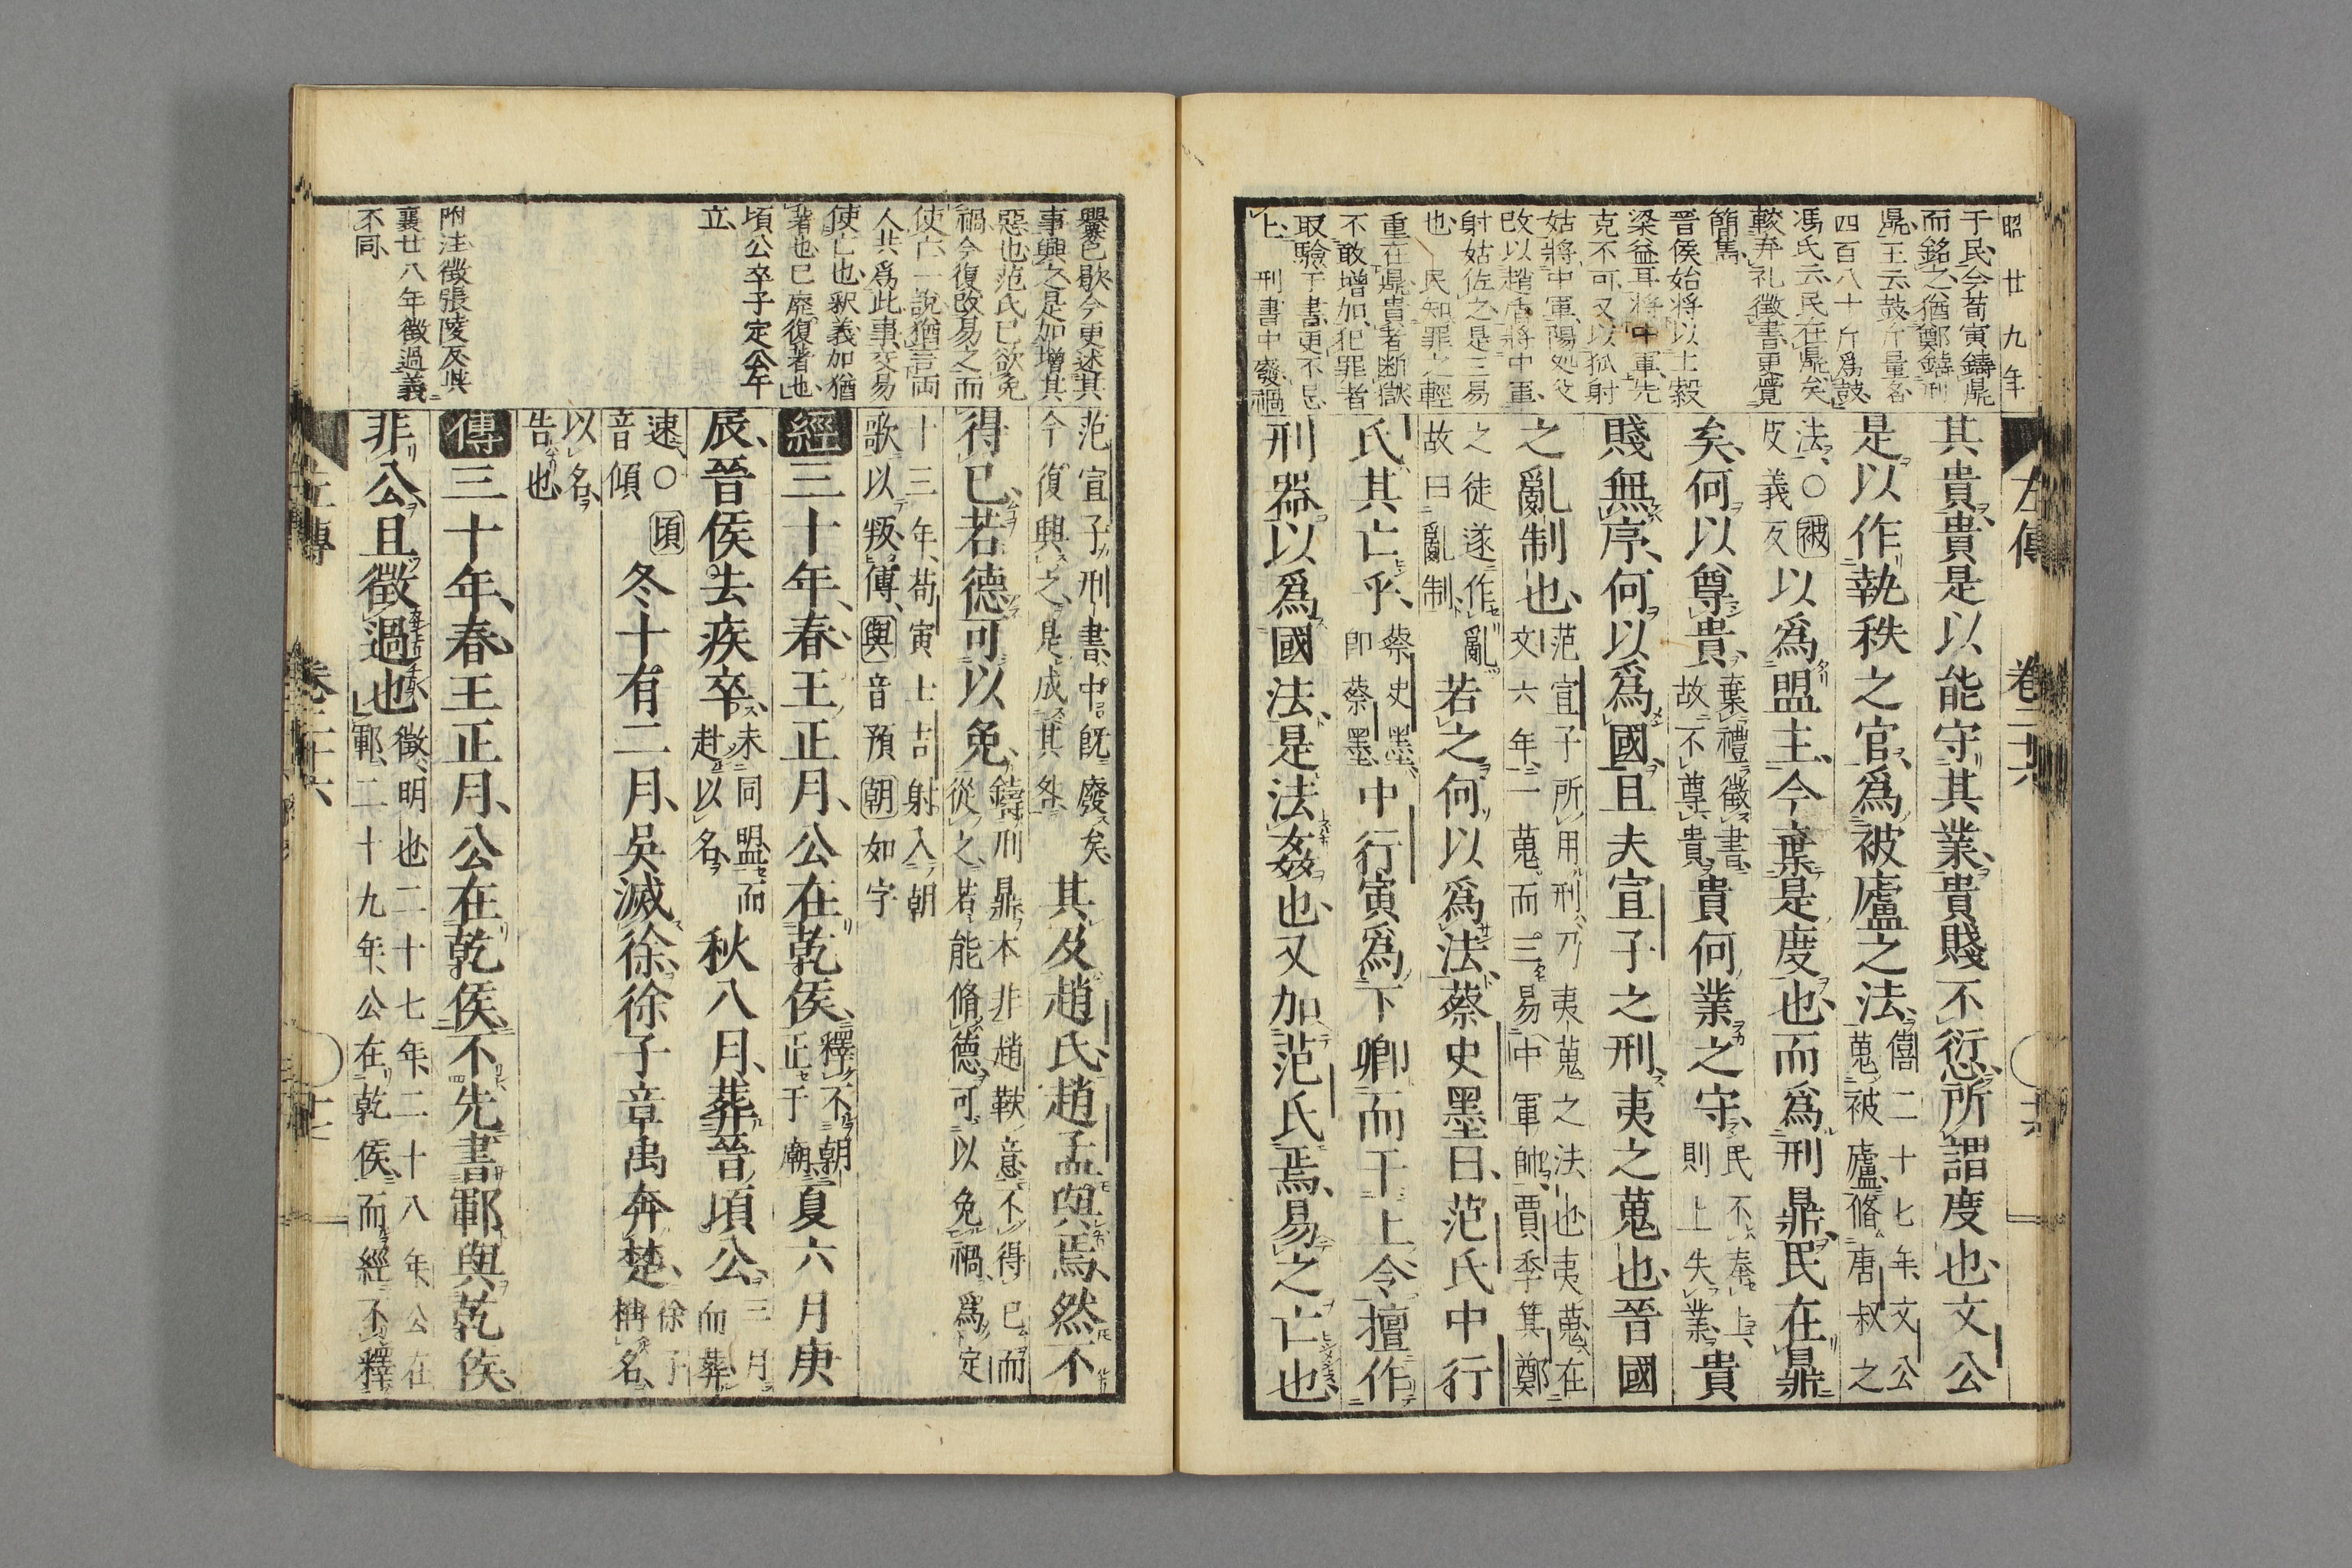 昭廿九年
于民今荀寅鑄鼎
而銘之猶鄭鑄刑
鼎王云鼓斤量名
四百八十斤爲鼓
馮氏云民在鼎矣
輕弃礼徵書更覺
簡雋
晉侯始将以士穀
梁益耳将中軍先
克不可又以狐射
姑將中軍陽処父
改以趙盾將中軍
射姑佐之是三易
也
民知罪之輕
重在鼎貴者断獄
不敢増加犯罪者
取驗于書更不忌
上
刑書中發禍
左傳 卷二十六
其貴貴是以能守其業貴賤不愆所謂度也文公
是以作執秩之官爲被廬之法僖二十七年文公
蒐被廬脩唐叔之
法〇被
皮義反以爲盟主今棄是度也而爲刑鼎民在鼎
矣何以尊貴棄禮徵書
故不尊貴貴何業之守民不奉上
則上失業貴
賤無序何以爲國且夫宣子之刑夷之蒐也晉國
之亂制也范宣子所用刑乃夷蒐之法也夷蒐在
文六年一蒐而三易中軍帥賈季箕鄭
之徒遂作亂
故曰亂制若之何以爲法蔡史墨曰范氏中行
氏其亡乎蔡史墨
即蔡墨中行寅爲下卿而干上令擅作
刑器以爲國法是法姦也又加范氏焉易之亡也
爨邑歇今更述其
事興之是如増其
惡也范氏已欲免
禍今復改易之而
使亡一說猶言両
人共爲此事交易
使亡也釈義加猶
著也已廃復著也
頃公卒子定公午
立
附注徵張陵反與
襄廿八年徵過義
不同
范宣子刑書中既廢矣
今復興之是成其咎其及趙氏趙孟與焉然不
得已若德可以免鑄刑鼎本非趙鞅意不得已而
從之若能脩德可以免禍爲定
十三年荀寅士吉射入朝
歌以叛傳與音預朝如字
經三十年春王正月公在乾侯釋不朝
正于廟夏六月庚
辰晉侯去疾卒未同盟而
赴以名秋八月葬晉頃公三月
而葬
速〇頃
音傾冬十有二月吳滅徐徐子章禹奔楚徐子
稱名
以名
告也
傳三十年春王正月公在乾侯不先書鄆與乾侯
非公且徵過也徵明也二十七年二十八年公在
鄆二十九年公在乾侯而經不釋
左傳 卷二十六